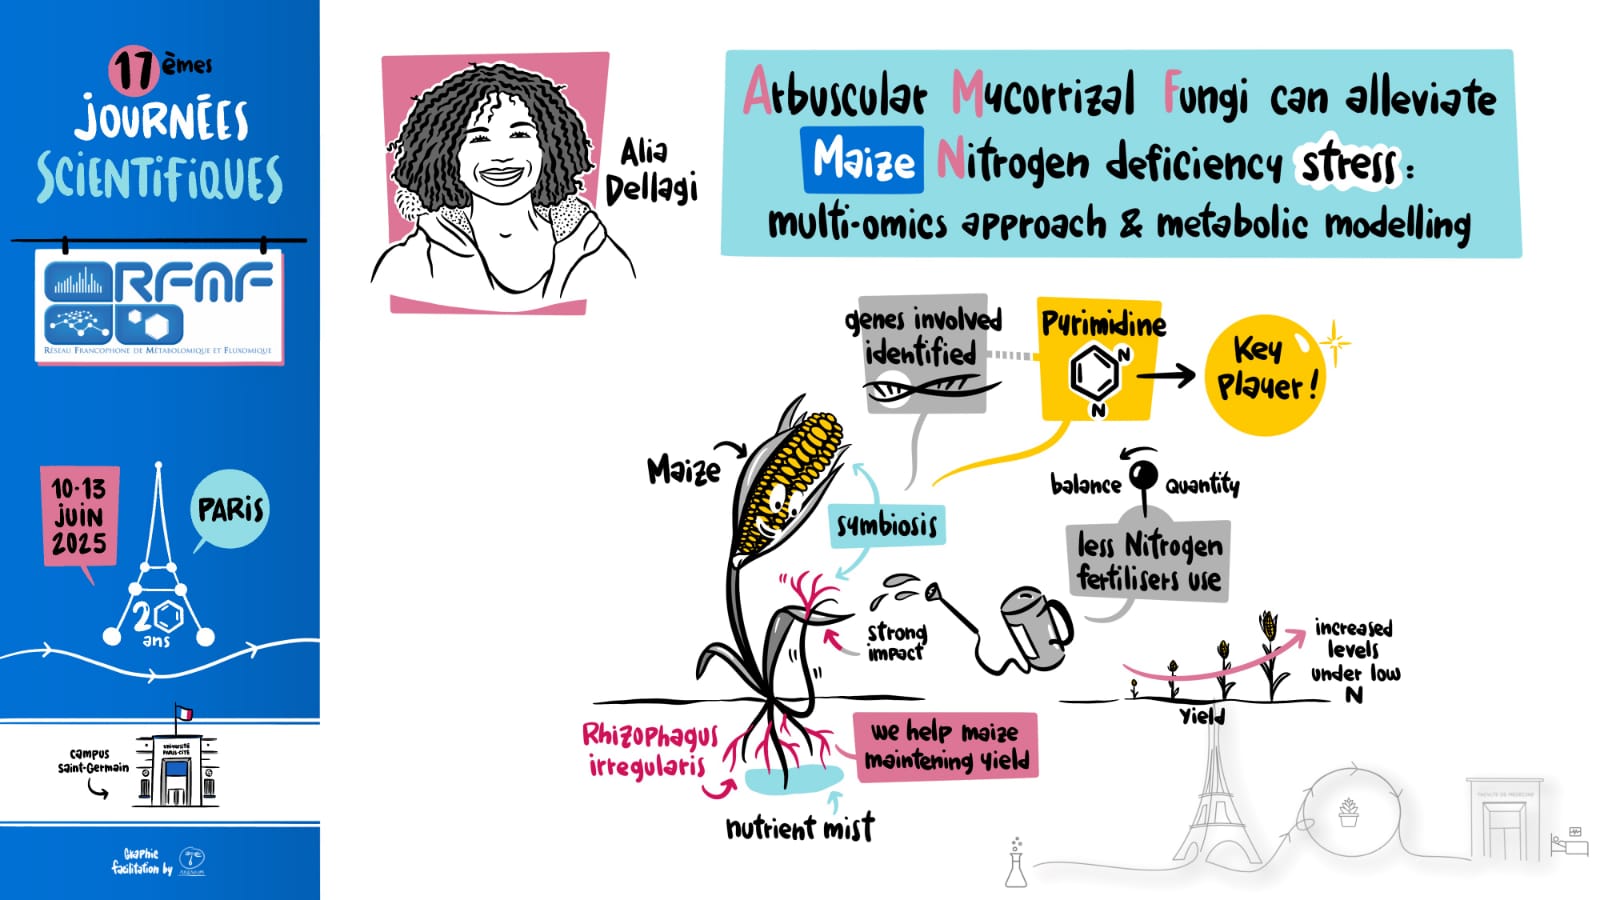 17èmes
JOURNÉES
SCiENTiFiQUES
RFMF
RÉSEAU FRANCOPHONE DE MÉTABOLOMIQUE ET FLUXOMIQUE
10-13
juiN
2025
PARiS
20
ans
campus
Saint-Germain
UNIVERSITÉ
PARIS CITÉ
Graphic
facilitation by
Alia
Dellagi
Arbuscular Mycorrizal Fungi can alleviate
Maize Nitrogen deficiency stress:
multi-omics approach & metabolic modelling
genes involved
identified
Pyrimidine
N
N
Key
Player!
Maize
symbiosis
balance
Quantity
less Nitrogen
fertilisers use
strong
impact
increased
levels
under low
N
Yield
Rhizophagus
irregularis
we help maize
maintening yield
nutrient mist
FACULTÉ DE MÉDECINE